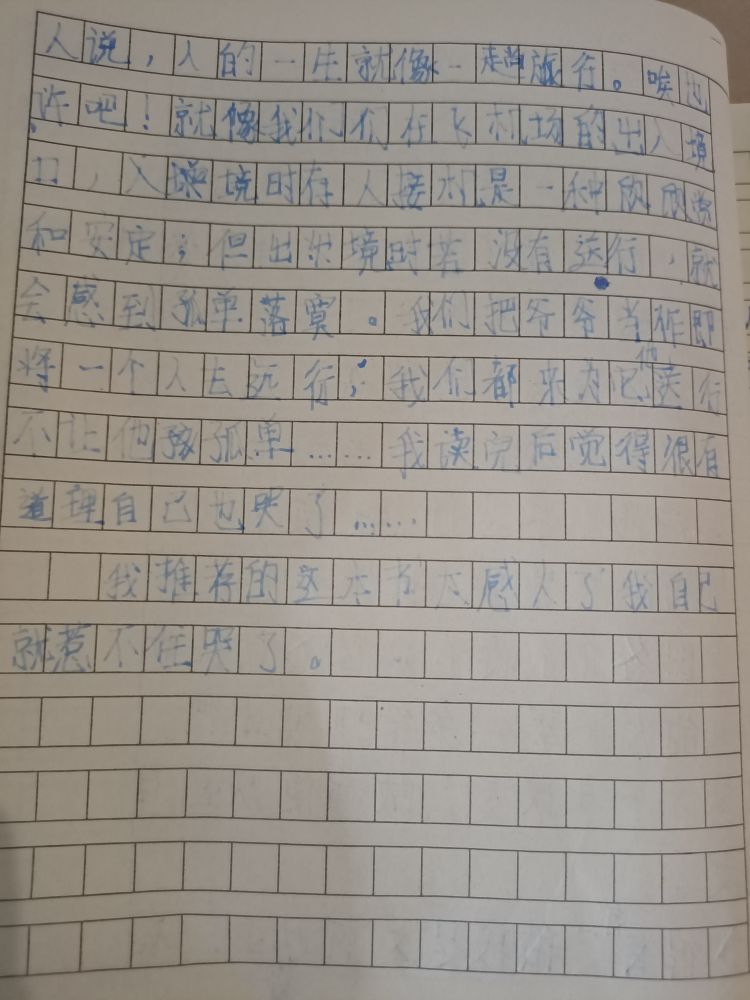 人说，人的一生就像一趟旅行。唉也
许吧！就像我们们在飞机场的出入境
口，入境时有人接机是一种欣欣赏
和安定；但出境时若没有送行，就
会感到孤单落寞。我们把爷爷当作即
将一个人去远行；我们都来为他送行
不让他孤单……我读完后觉得很有
道理自己也哭了……
我推荐的这本书太感人了我自己
就惹不住哭了。